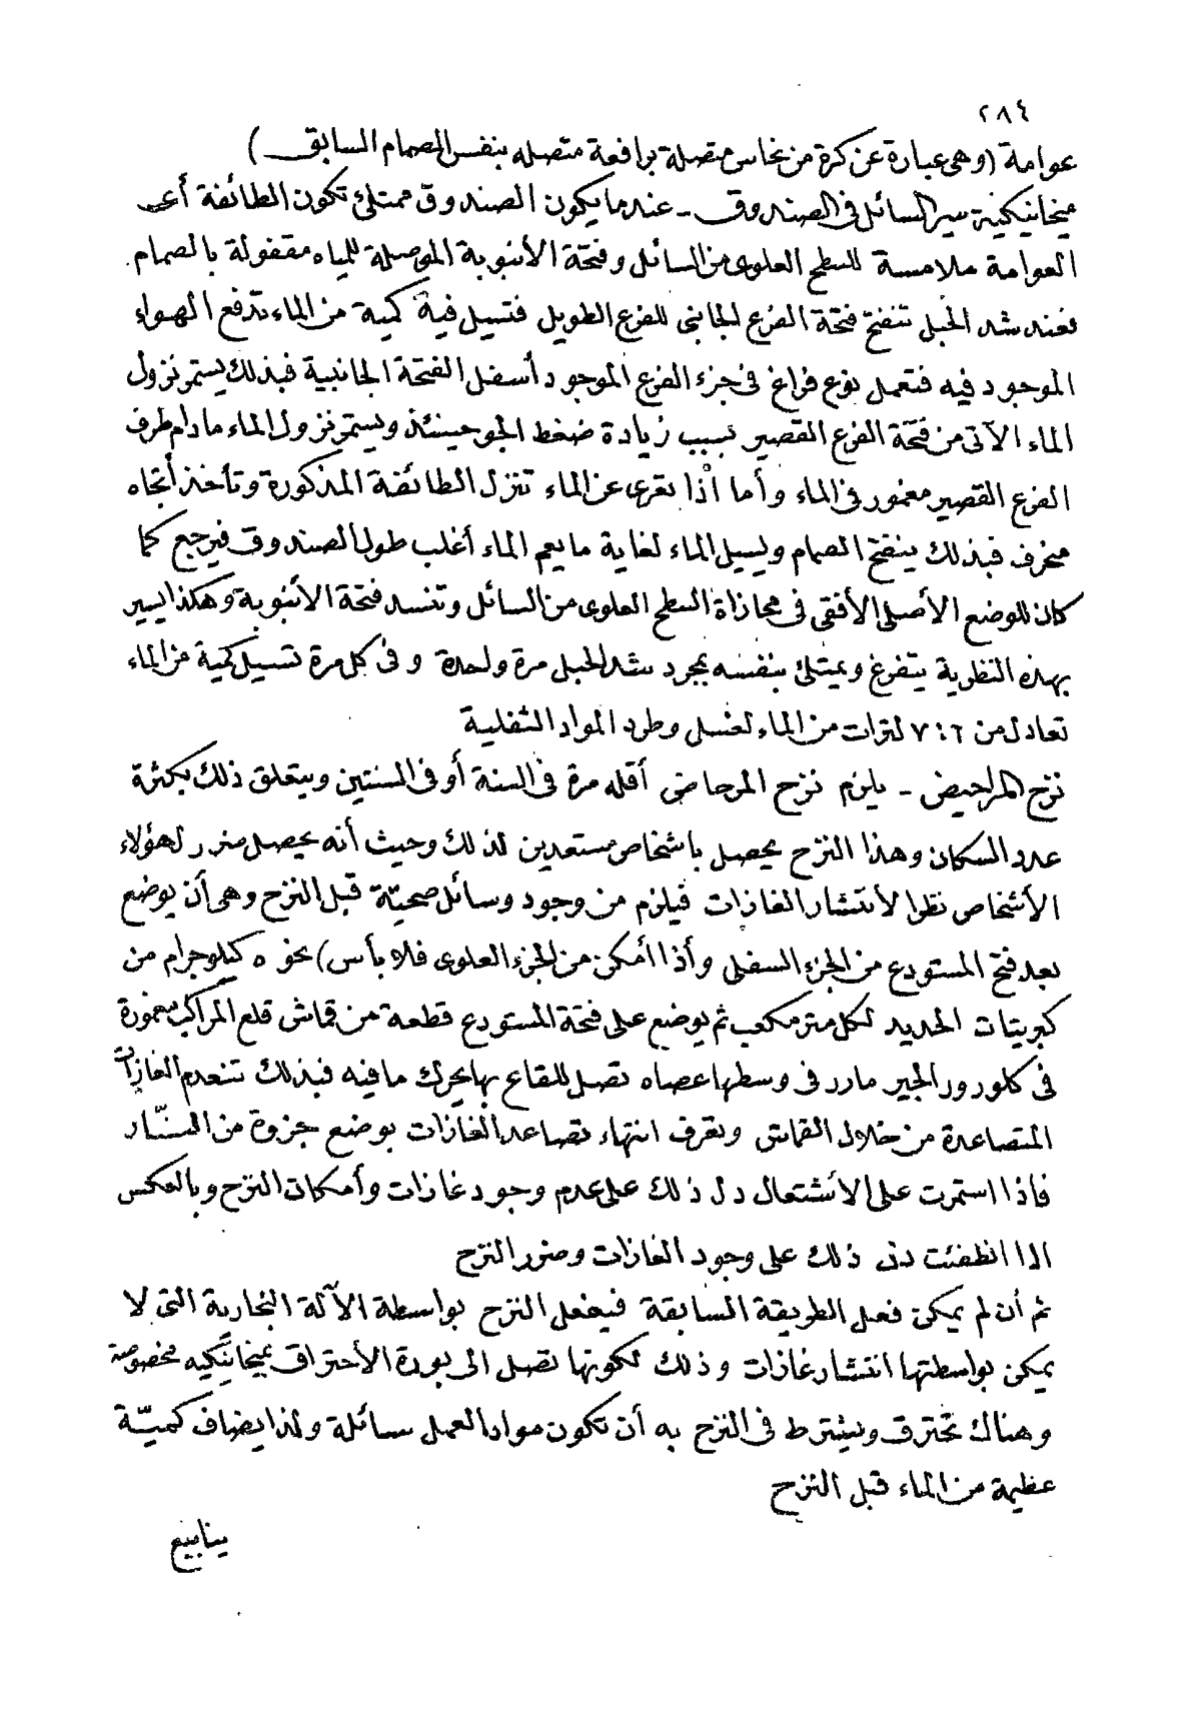 ٢٨٤
عوامة (وهى عبارة عن كرة من نحاس متصلة برافعة متصله بنفس الصمام السابق)
ميخانيكية سير السائل فى الصندوق - عندما يكون الصندوق ممتلئ تكون الطائفة أى
العوامة ملامسة للسطح العلوى من السائل وفتحة الأنبوبة الموصلة للمياه مقفولة بالصمام.
فعند شد الحبل تنفتح فتحة الفرع الجانبى للفرع الطويل فتسيل فية كمية من الماء تدفع الهواء
الموجود فيه فتعمل نوع فراغ فى جزء الفرع الموجود أسفل الفتحة الجانبية فبذلك يستمر نزول
الماء الآتى من فتحة الفرع القصير بسبب زيادة ضغط الجو حينئذ ويستمر نزول الماء مادام طرف
الفرع القصير مغمور فى الماء وأما اذا تعرى عن الماء تنزل الطائفة المذكورة وتأخذ أتجاه
منحرف فبذلك ينفتح الصمام ويسيل الماء لغاية ما يعم الماء أغلب طول الصندوق فيرجع كما
كان للوضع الأصلى الأفقى فى محازاة السطح العلوى من السائل وتنسد فتحة الأنبوبة وهكذا يسير
بهذه النظرية يتفرغ ويمتلئ بنفسه بمجرد شد الحبل مرة واحدة وفى كل مرة تسيل كمية من الماء
تعادل من ٦:٧ لترات من الماء لغسل وطرد المواد الثفلية
نزح المراحيض - يلزم نزح المرحاض أقله مرة فى السنة أو فى السنتين ويتعلق ذلك بكثرة
عدد السكان وهذا النزح يحصل باشخاص مستعدين لذلك وحيث أنه يحصل ضرر لهؤلاء
الأشخاص نظرا لأنتشار الغازات فيلزم من وجود وسائل صحيّة قبل النزح وهى أن يوضع
بعد فتح المستودع من الجزء السفلى وأذا أمكن من الجزء العلوى فلا بأس) نحو ٥ كيلوجرام من
كبريتات الحديد لكل متر مكعب ثم يوضع على فتحة المستودع قطعة من قماش قلع المراكب مغمورة
فى كلورور الجير مارر فى وسطها عصاه تصل للقاع بها يحرك ما فيه فبذلك تنعدم الغازات
المتصاعدة من خلال القماش وتعرف انتهاء تصاعد الغازات بوضع جزوة من النّار
فاذا استمرت على الأشتعال دل ذلك على عدم وجود غازات وأمكان النزح وبالعكس
اذا انطفئت دل ذلك على وجود الغازات وضرر النزح
ثم أن لم يمكن فعل الطريقة السابقة فيفعل النزح بواسطة الآلة البخارية التى لا
يمكن بواسطتها انتشار غازات وذلك لكونها تصل الى بورة الأحتراق بميخانيكيه مخصوصة
وهناك تحترق ويشترط فى النزح به أن تكون مواد العمل سائلة ولذا يضاف كميّة
عظيمة من الماء قبل النزح
ينابيع